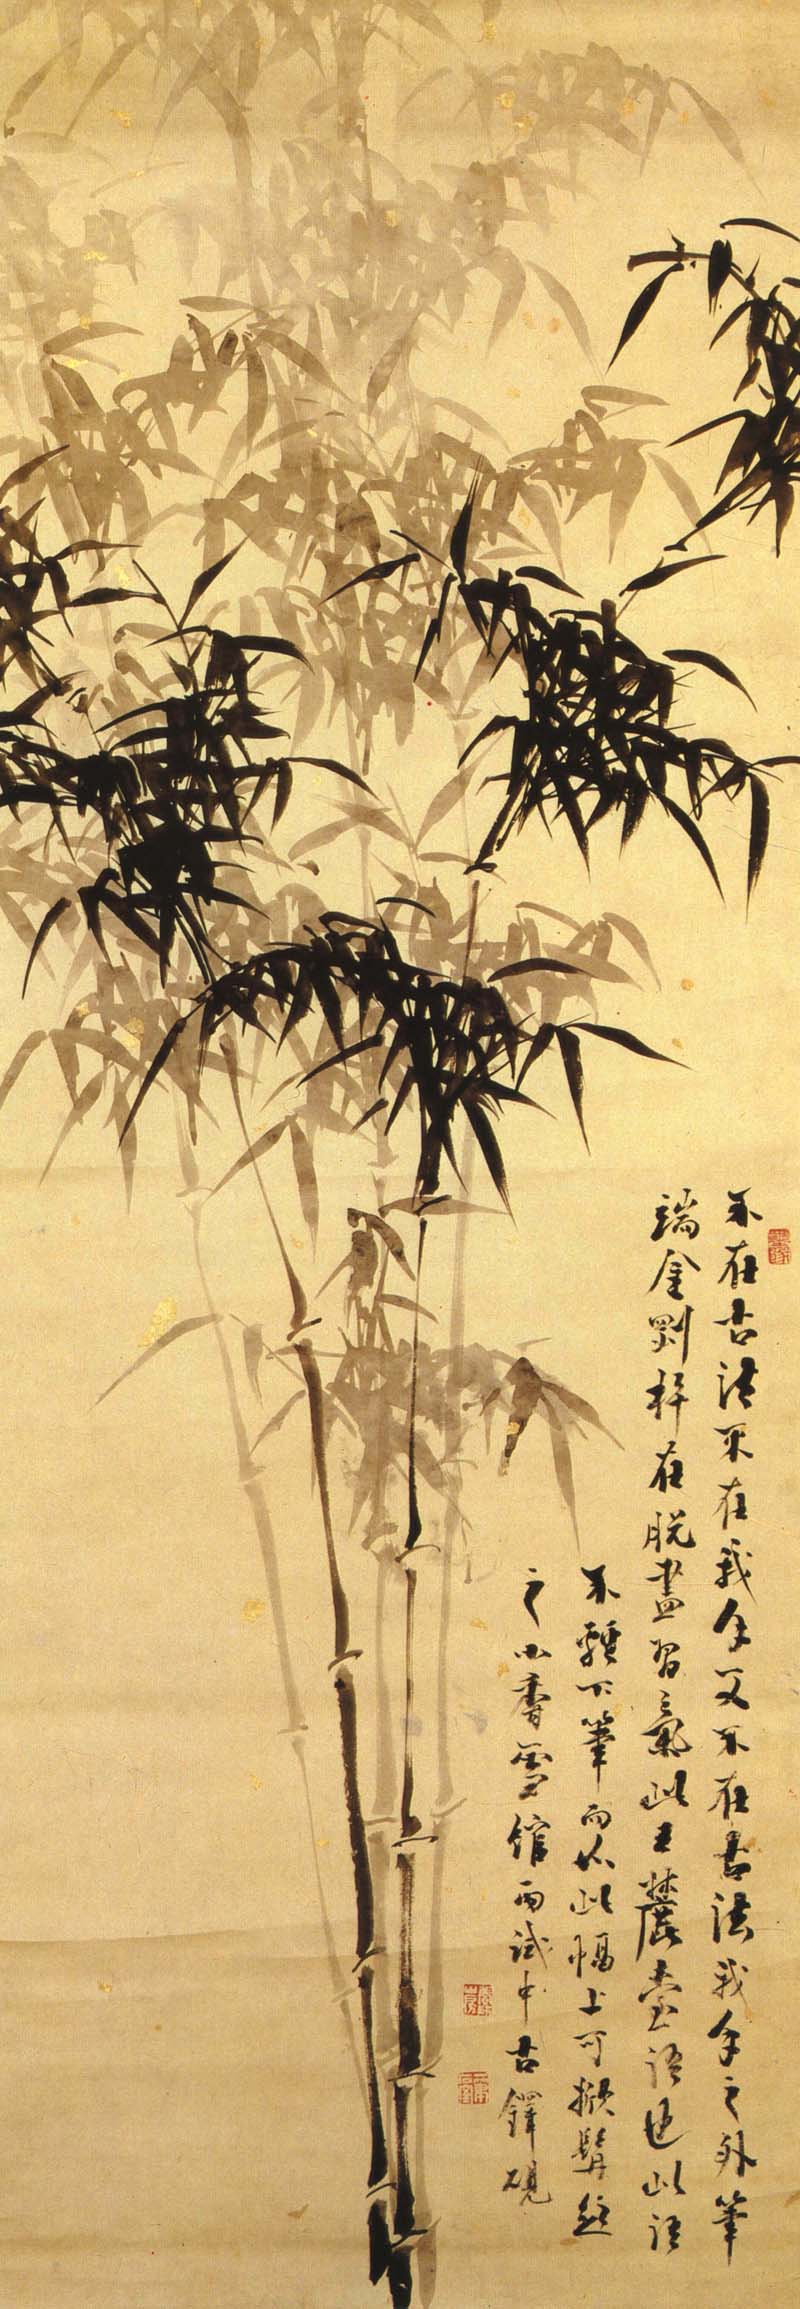 不在古法不在我手又不在古法我手之外筆
端金剛杵在脫盡習氣此王麓臺語也此語
不輕下筆而此幅上可掀髯
之小香雪館試中古鐸硯